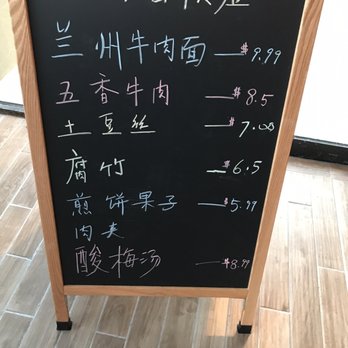 兰州牛肉面 — $9.99
五香牛肉 — $8.5
土豆丝 — $7.00
腐竹 — $6.5
煎饼果子 — $5.99
肉夹
酸梅汤 — $8.99